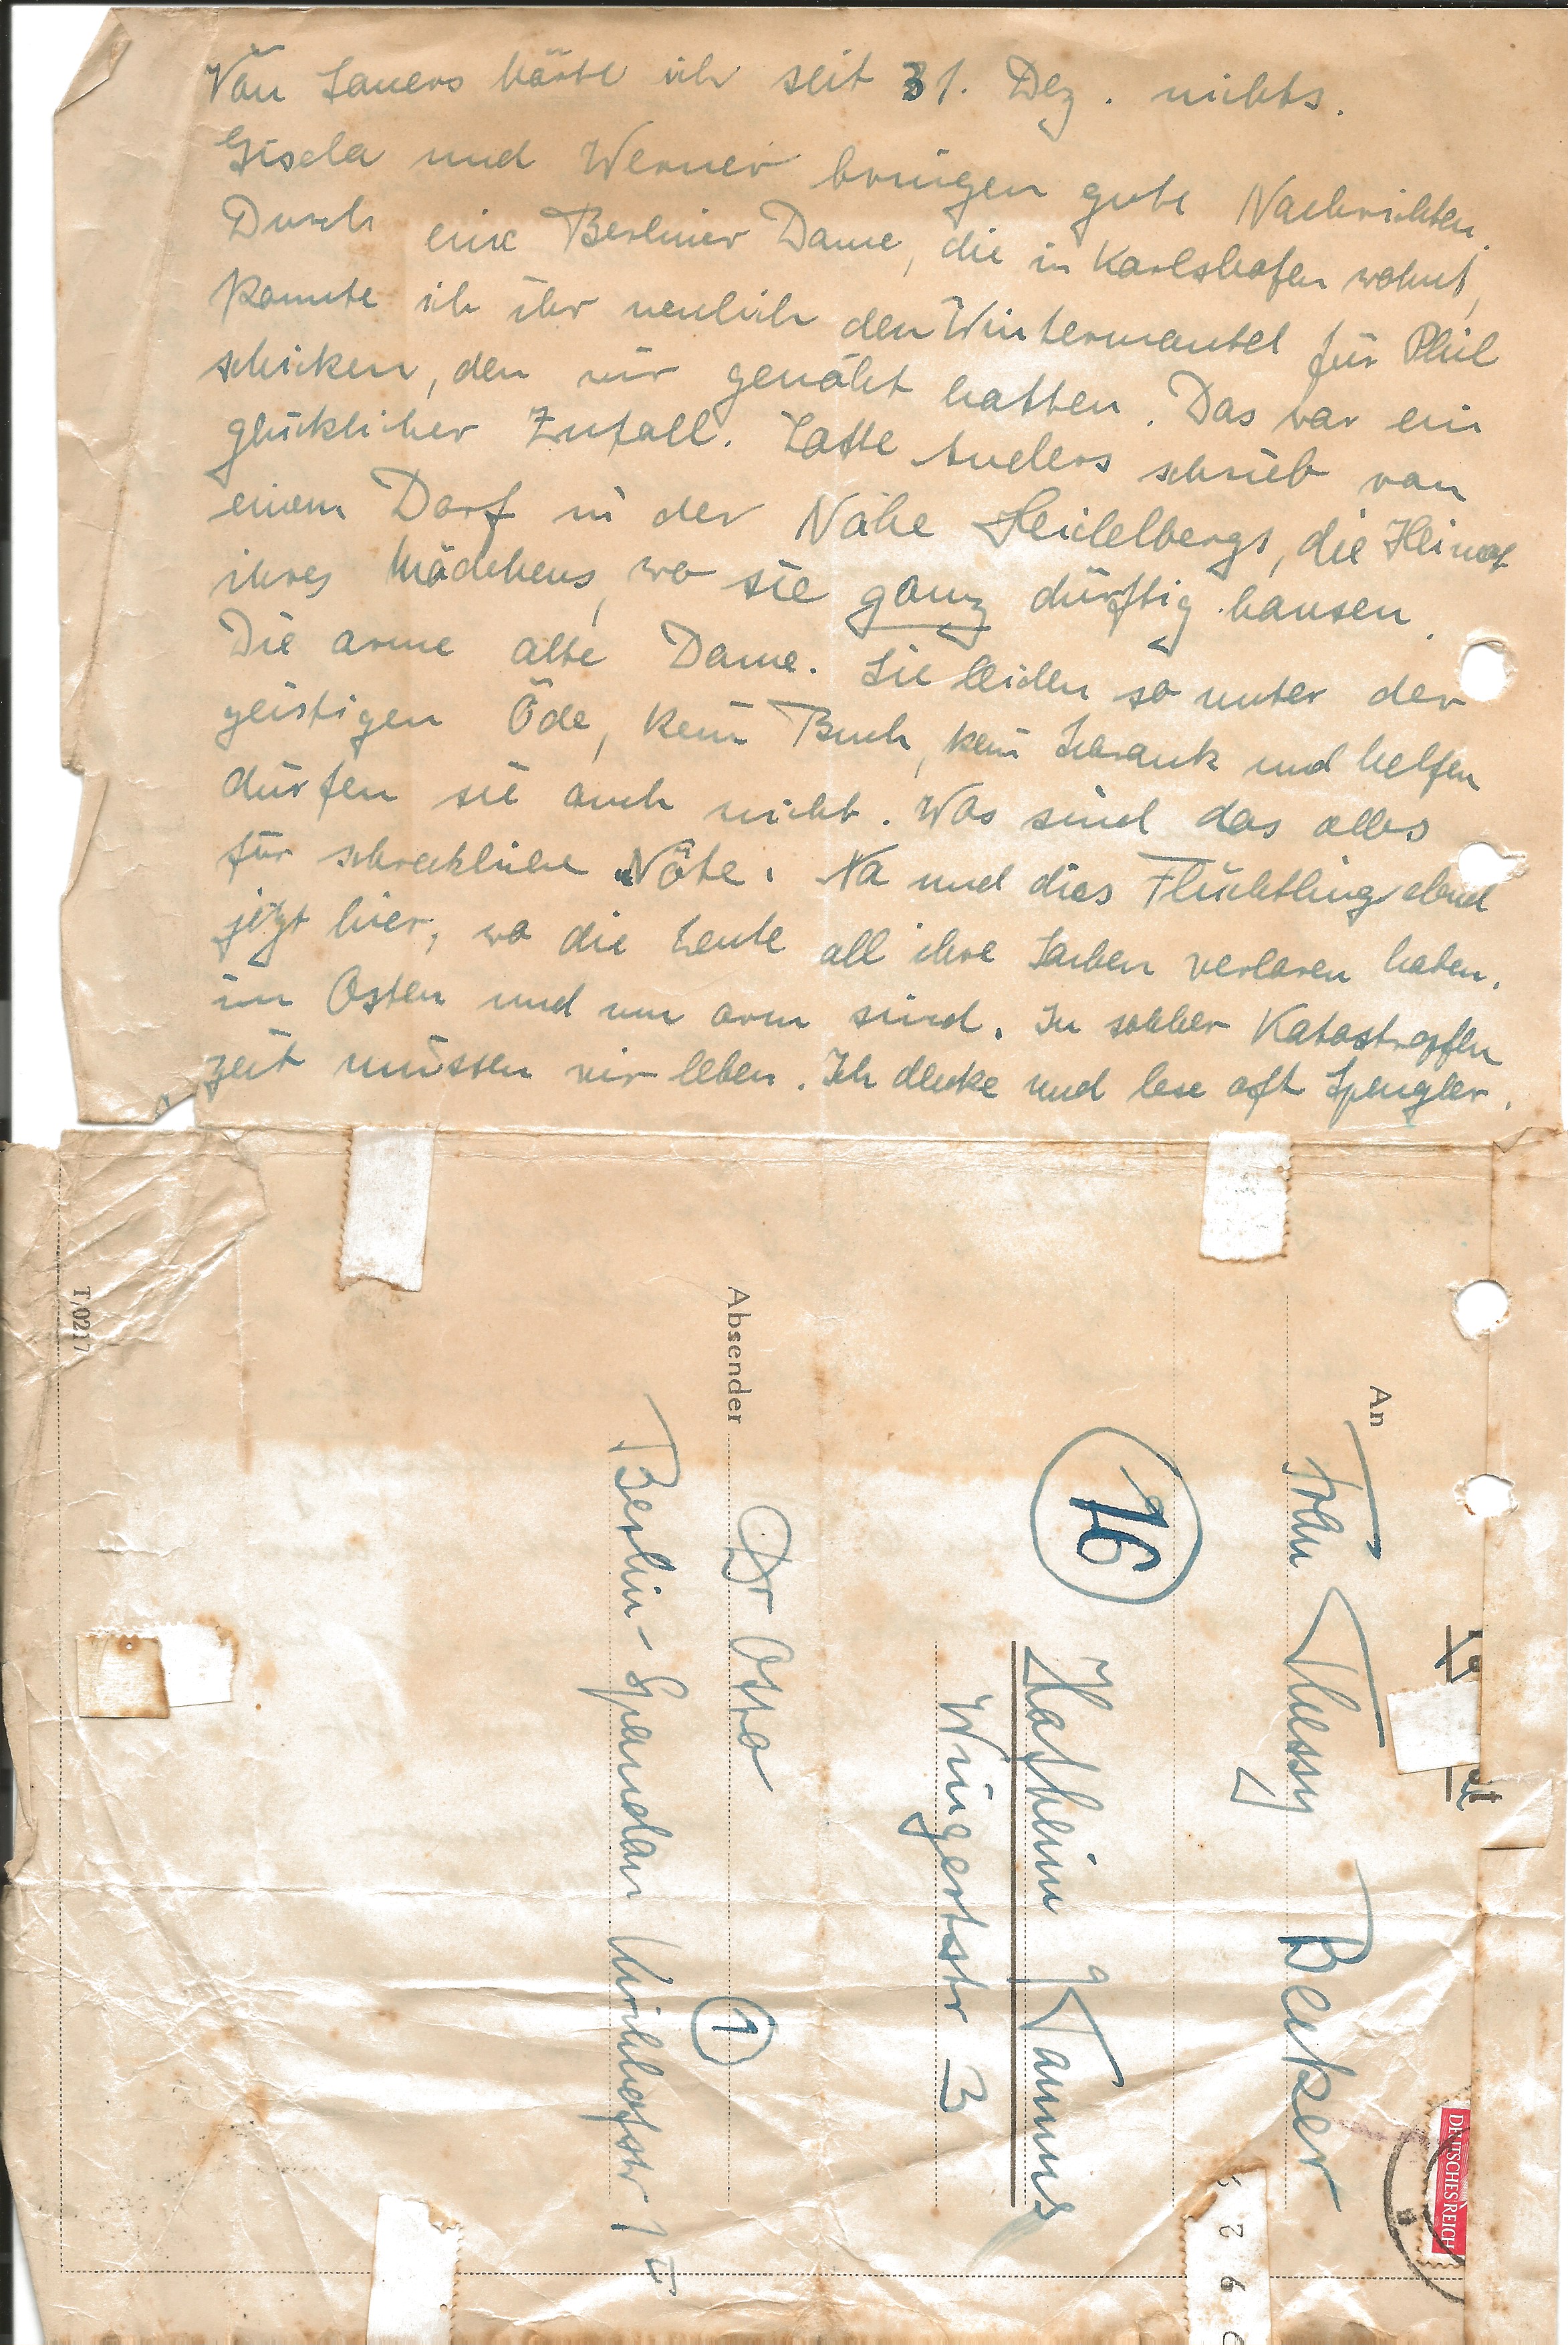 Von Lauers hörte ich seit 31. Dez. nichts.
Gisela und Werner bringen gute Nachrichten.
Durch eine Berliner Dame, die in Karlshafen wohnt,
konnte ich ihr neulich den Wintermantel für Phil
schicken, den wir genäht hatten. Das war ein
glücklicher Zufall. Lotte Anders schrieb von
einem Dorf in der Nähe Heidelbergs, die Heimat
ihres Mädchens, wo sie ganz dürftig hausen.
Die arme alte Dame. Sie leiden so unter der
geistigen Öde, kein Buch, kein Schrank und helfen
dürfen sie auch nicht. Was sind das alles
für schreckliche Nöte. Na und dies Flüchtlingselend
jetzt hier, wo die Leute all ihre Sachen verloren haben,
im Osten und nun arm sind. In solcher Katastrophen
zeit müssen wir leben. Ich denke und lese oft Spengler.
An
Frau Thessy Becker
16
Hofheim Taunus
Wingertstr 3
Absender
Dr Otto
1
Berlin-Spandau Kirchhofstr 1 II
T/0217
DEUTSCHES REICH
2 6